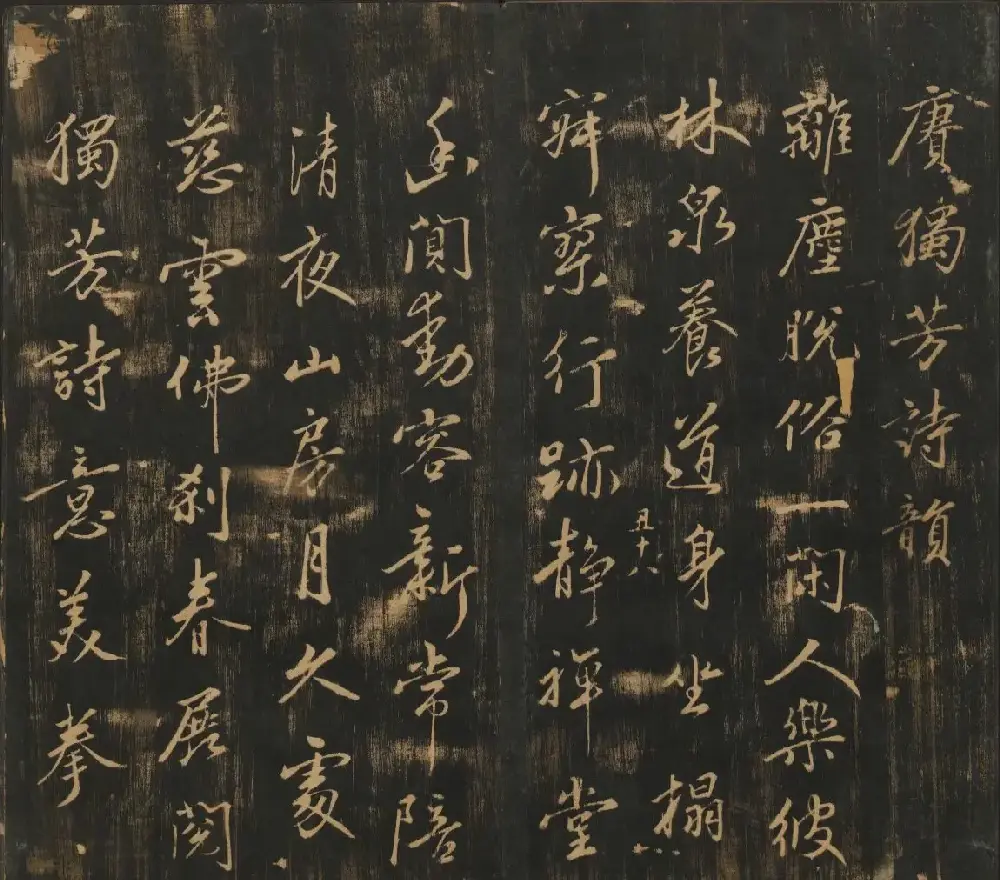 賡獨芳詩韻
離塵脫俗一閑人樂彼
林泉養道身坐榻
丑十八
寂寥行跡静禪堂
幽闃動容新常陪
清夜山房月久處
慈雲佛刹春展閱
獨芳詩意美拳